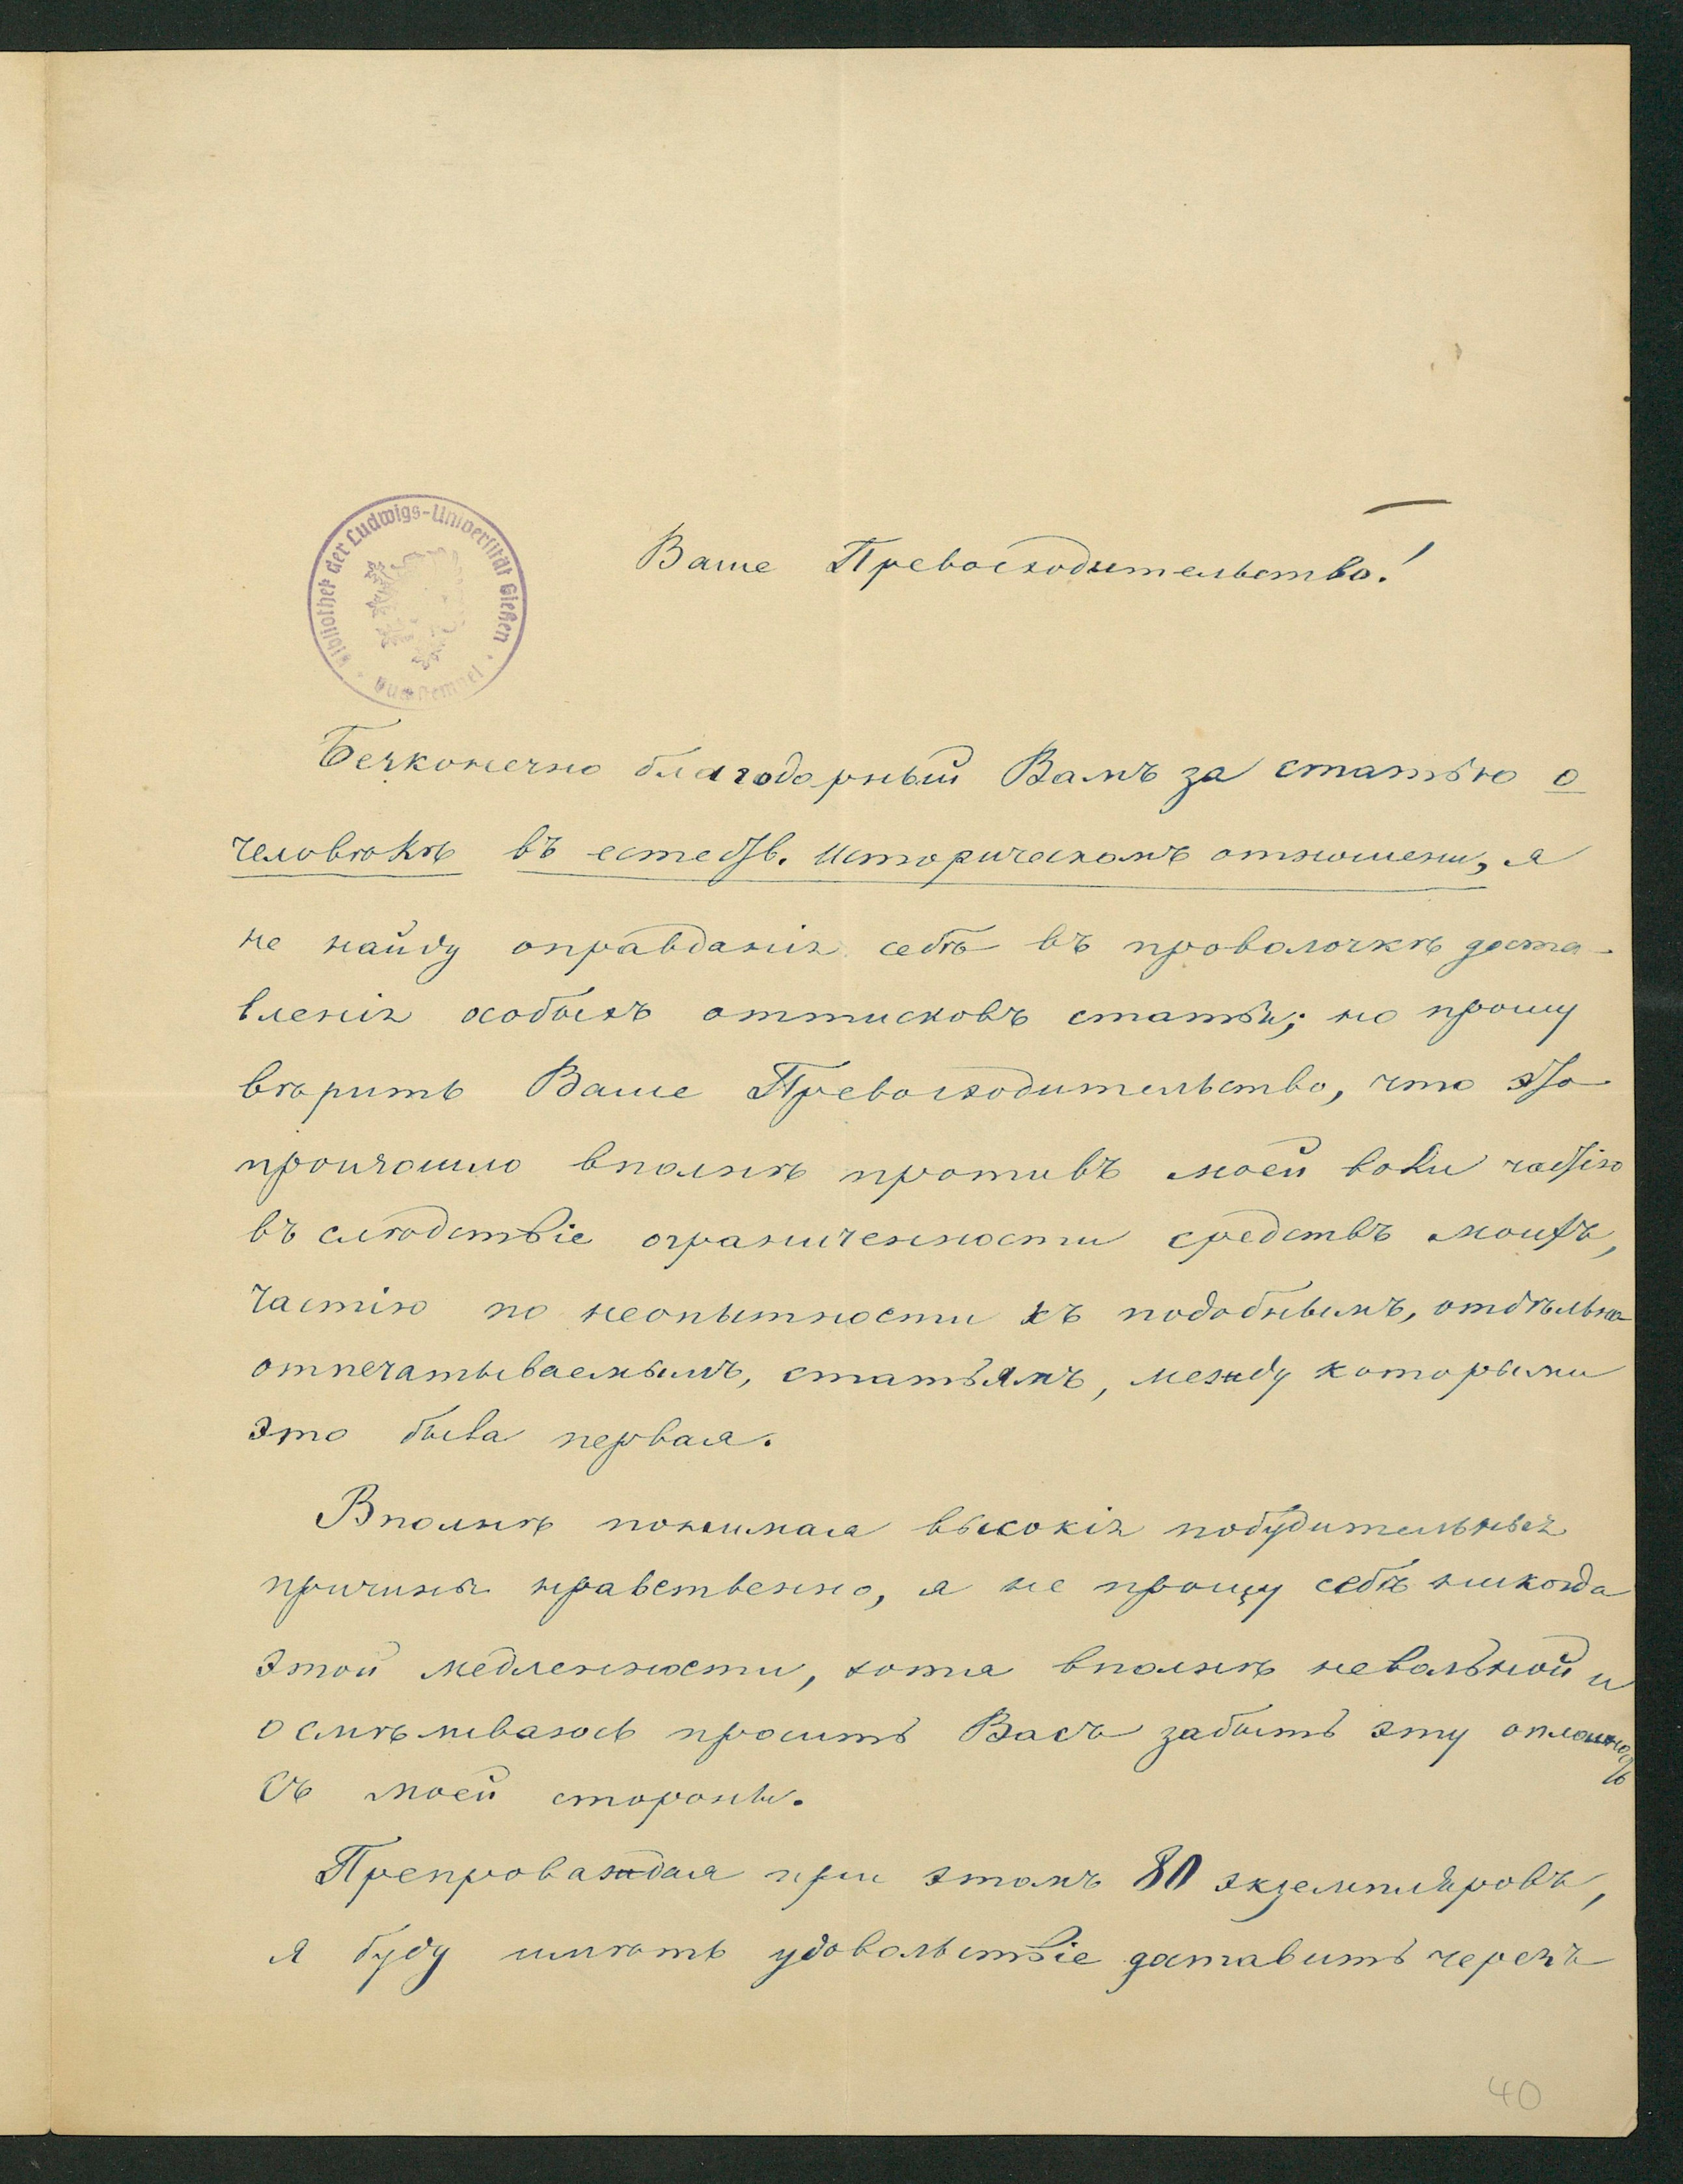 Bibliothek der Ludwigs-Universität Gießen
Ваше Превосходительство!
Безконечно благодарный Вамъ за статью о
человѣкѣ въ естеств. историческомъ отношени, я
не найду оправданія себѣ въ проволочкѣ доста-
вленія особыхъ оттисковъ статьи; но прошу
вѣрить Ваше Превосходительство, что это
произошло вполнѣ противъ моей воли частію
въ слѣдствіе ограниченности средствъ моихъ,
частію по неопытности къ подобнымъ, отдѣльно
отпечатываемымъ, статьямъ, между которыми
это была первая.
Вполнѣ понимая высокія побудительныя
причины нравственно, я не прощу себѣ никогда
этой медленности, хотя вполнѣ невольной и
осмѣливаюсь просить Васъ забыть эту оплошность
съ моей стороны.
Препровождая при этомъ 80 экземпляровъ,
я буду имѣть удовольствіе доставить черезъ
40